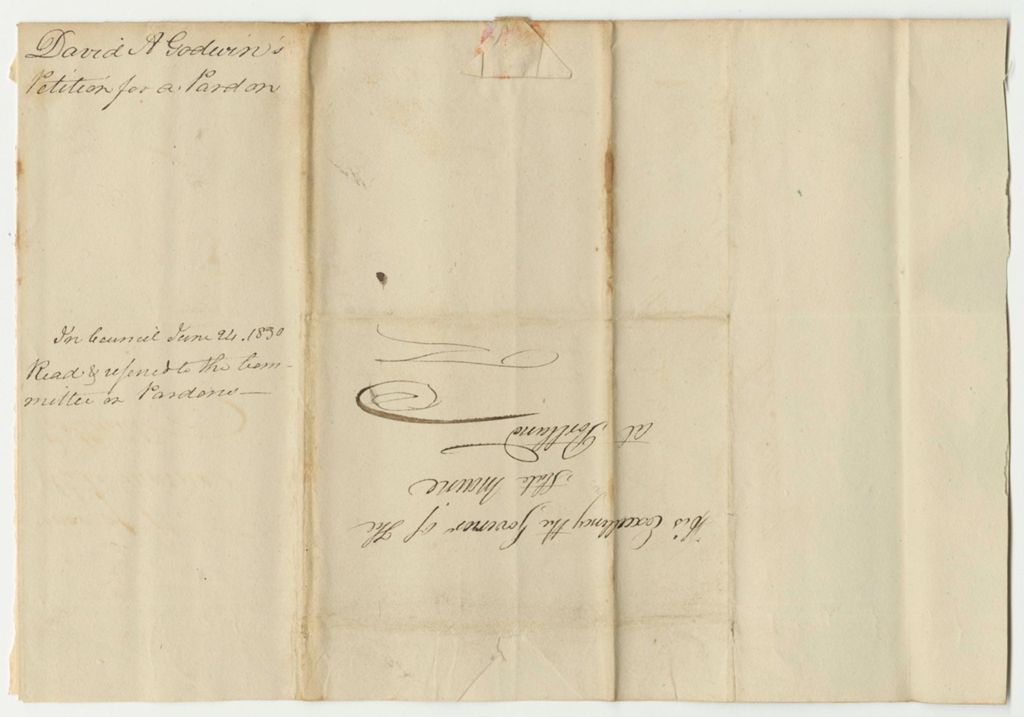 David A Godwin's
Petition for a Pardon
In Council June 24. 1830
Read & referred to the Com-
mittee on Pardons—
His Excellency the Governor of The
State Maine
at Portland